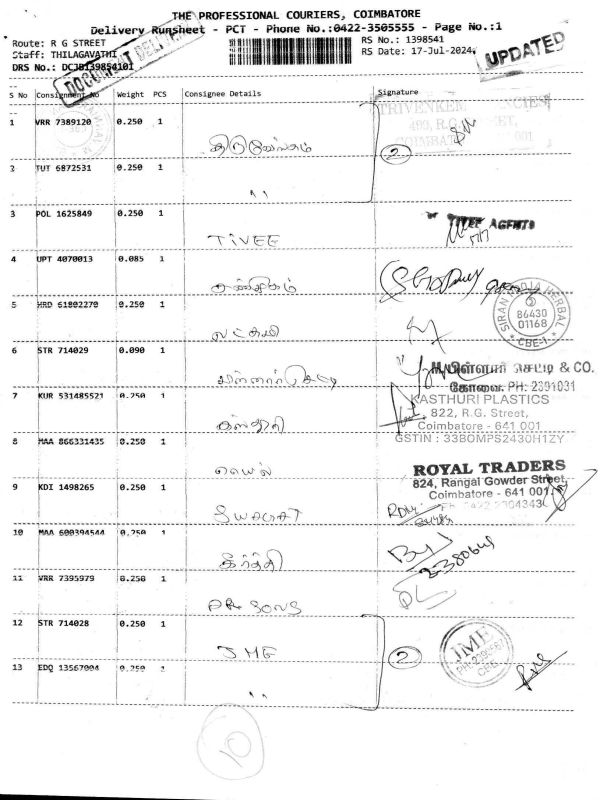 THE PROFESSIONAL COURIERS, COIMBATORE
Delivery Runsheet - PCT - Phone No.:0422-3505555 - Page No.:1
Route: R G STREET
RS No.: 1398541
Staff: THILAGAVATHI
RS Date: 17-Jul-2024
DRS No.: DCJB139854101
DOCUMENT DELIVERY
UPDATED
S No Consignment No Weight PCS Consignee Details Signature
1 VRR 7389120 0.250 1
TRIVENKEM AGENCIES
499, R.G. STREET,
COIMBATORE 001
2
2 TUT 6872531 0.250 1
"
3 POL 1625849 0.250 1 TIVEE
TIVEE AGENTS
4 UPT 4070013 0.085 1 சண்முகம்
5 HRD 61802270 0.250 1 லட்சுமி
86430
01168
CBE-1
6 STR 714029 0.090 1
பிள்ளையார் செட்டி & CO.
கோவை. PH: 2391031
7 KUR 531485521 0.250 1 கஸ்தூரி
KASTHURI PLASTICS
822, R.G. Street,
Coimbatore - 641 001
GSTIN : 33BOMPS2430H1ZY
8 MAA 866331435 0.250 1
ROYAL TRADERS
824, Rangai Gowder Street,
Coimbatore - 641 001.
9 KDI 1498265 0.250 1
10 MAA 600394544 0.250 1 கீர்த்தி
11 VRR 7395979 0.250 1 PR SONS
12 STR 714028 0.250 1 JME
JME
CBE
2
13 EDQ 13567004 0.250 1
"
10